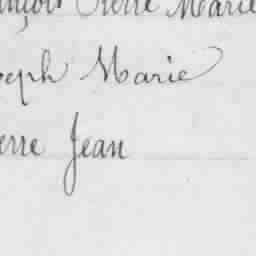 ançois Pierre Marie
oseph Marie
erre Jean